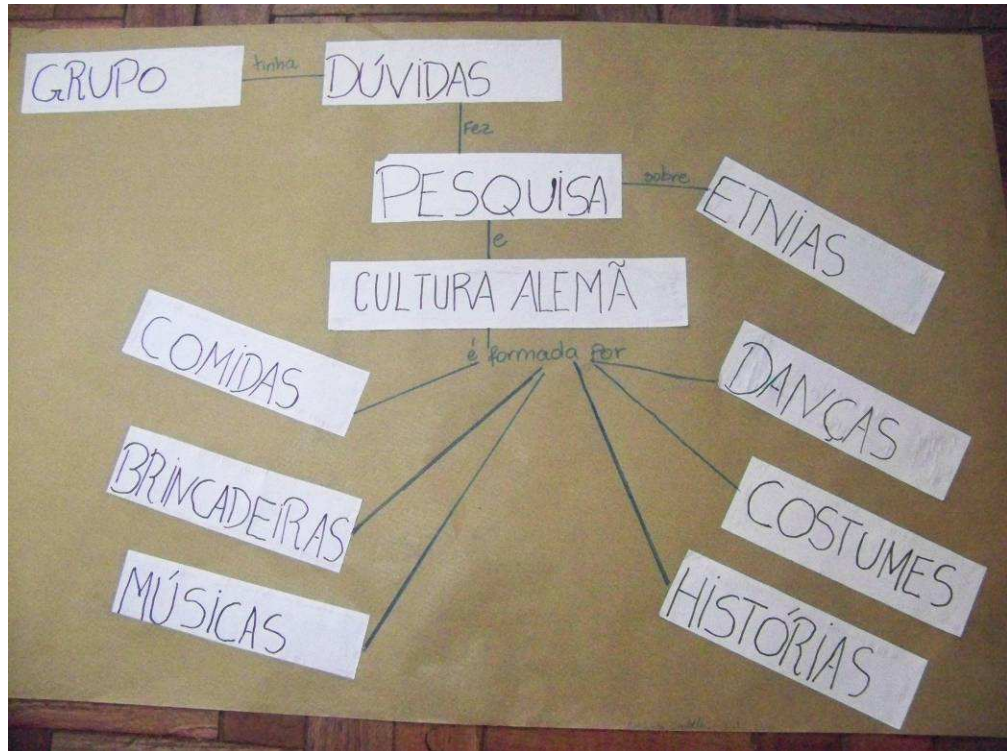 GRUPO tinha DÚVIDAS
FEZ
PESQUISA sobre ETNIAS
e
CULTURA ALEMÃ
é formada por
COMIDAS
BRINCADEIRAS
MÚSICAS
DANÇAS
COSTUMES
HISTÓRIAS